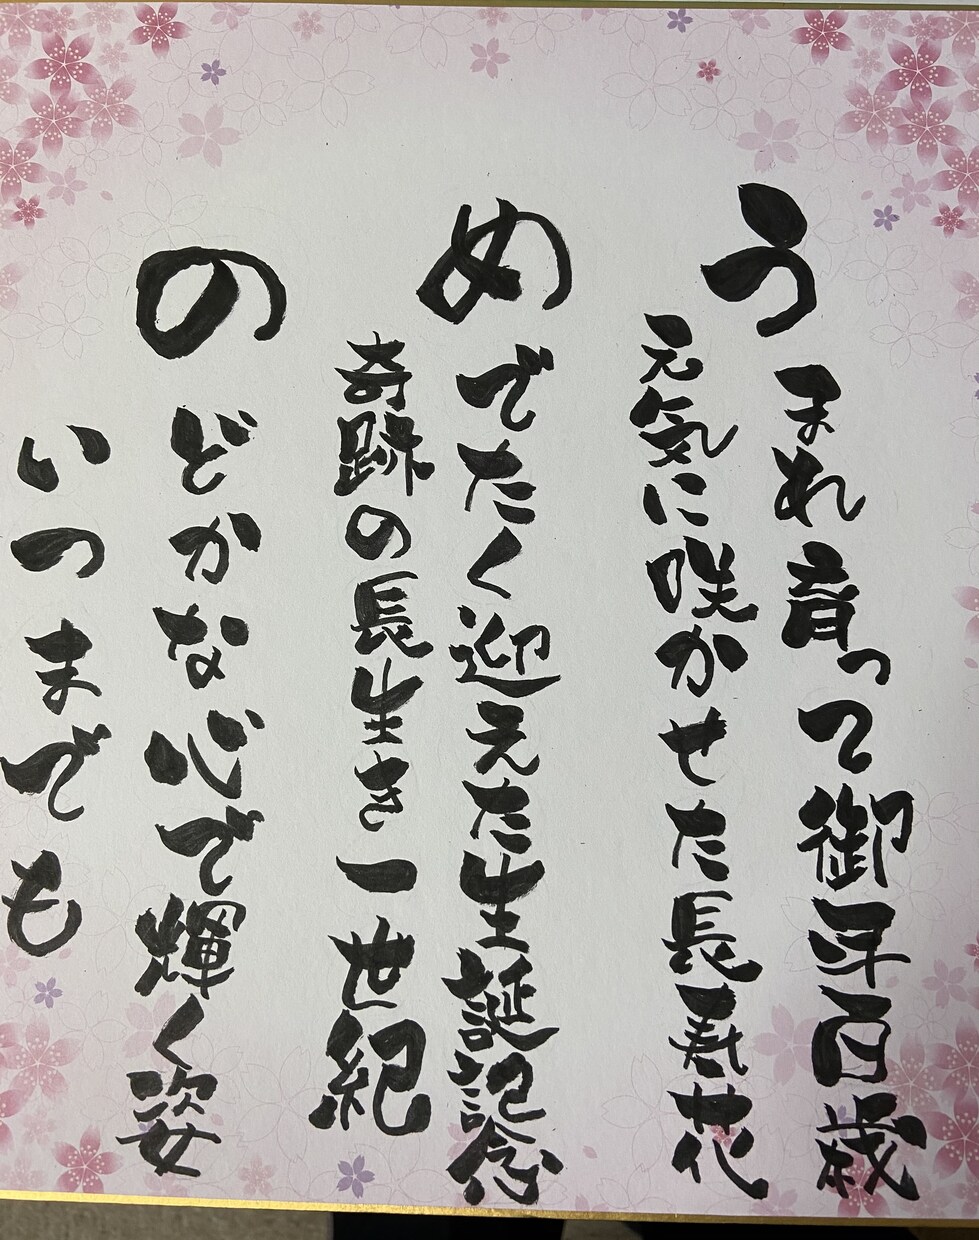 うまれ育って御年百歳
元気に咲かせた長寿花
めでたく迎えた生誕記念
奇跡の長生き一世紀
のどかな心で輝く姿
いつまでも